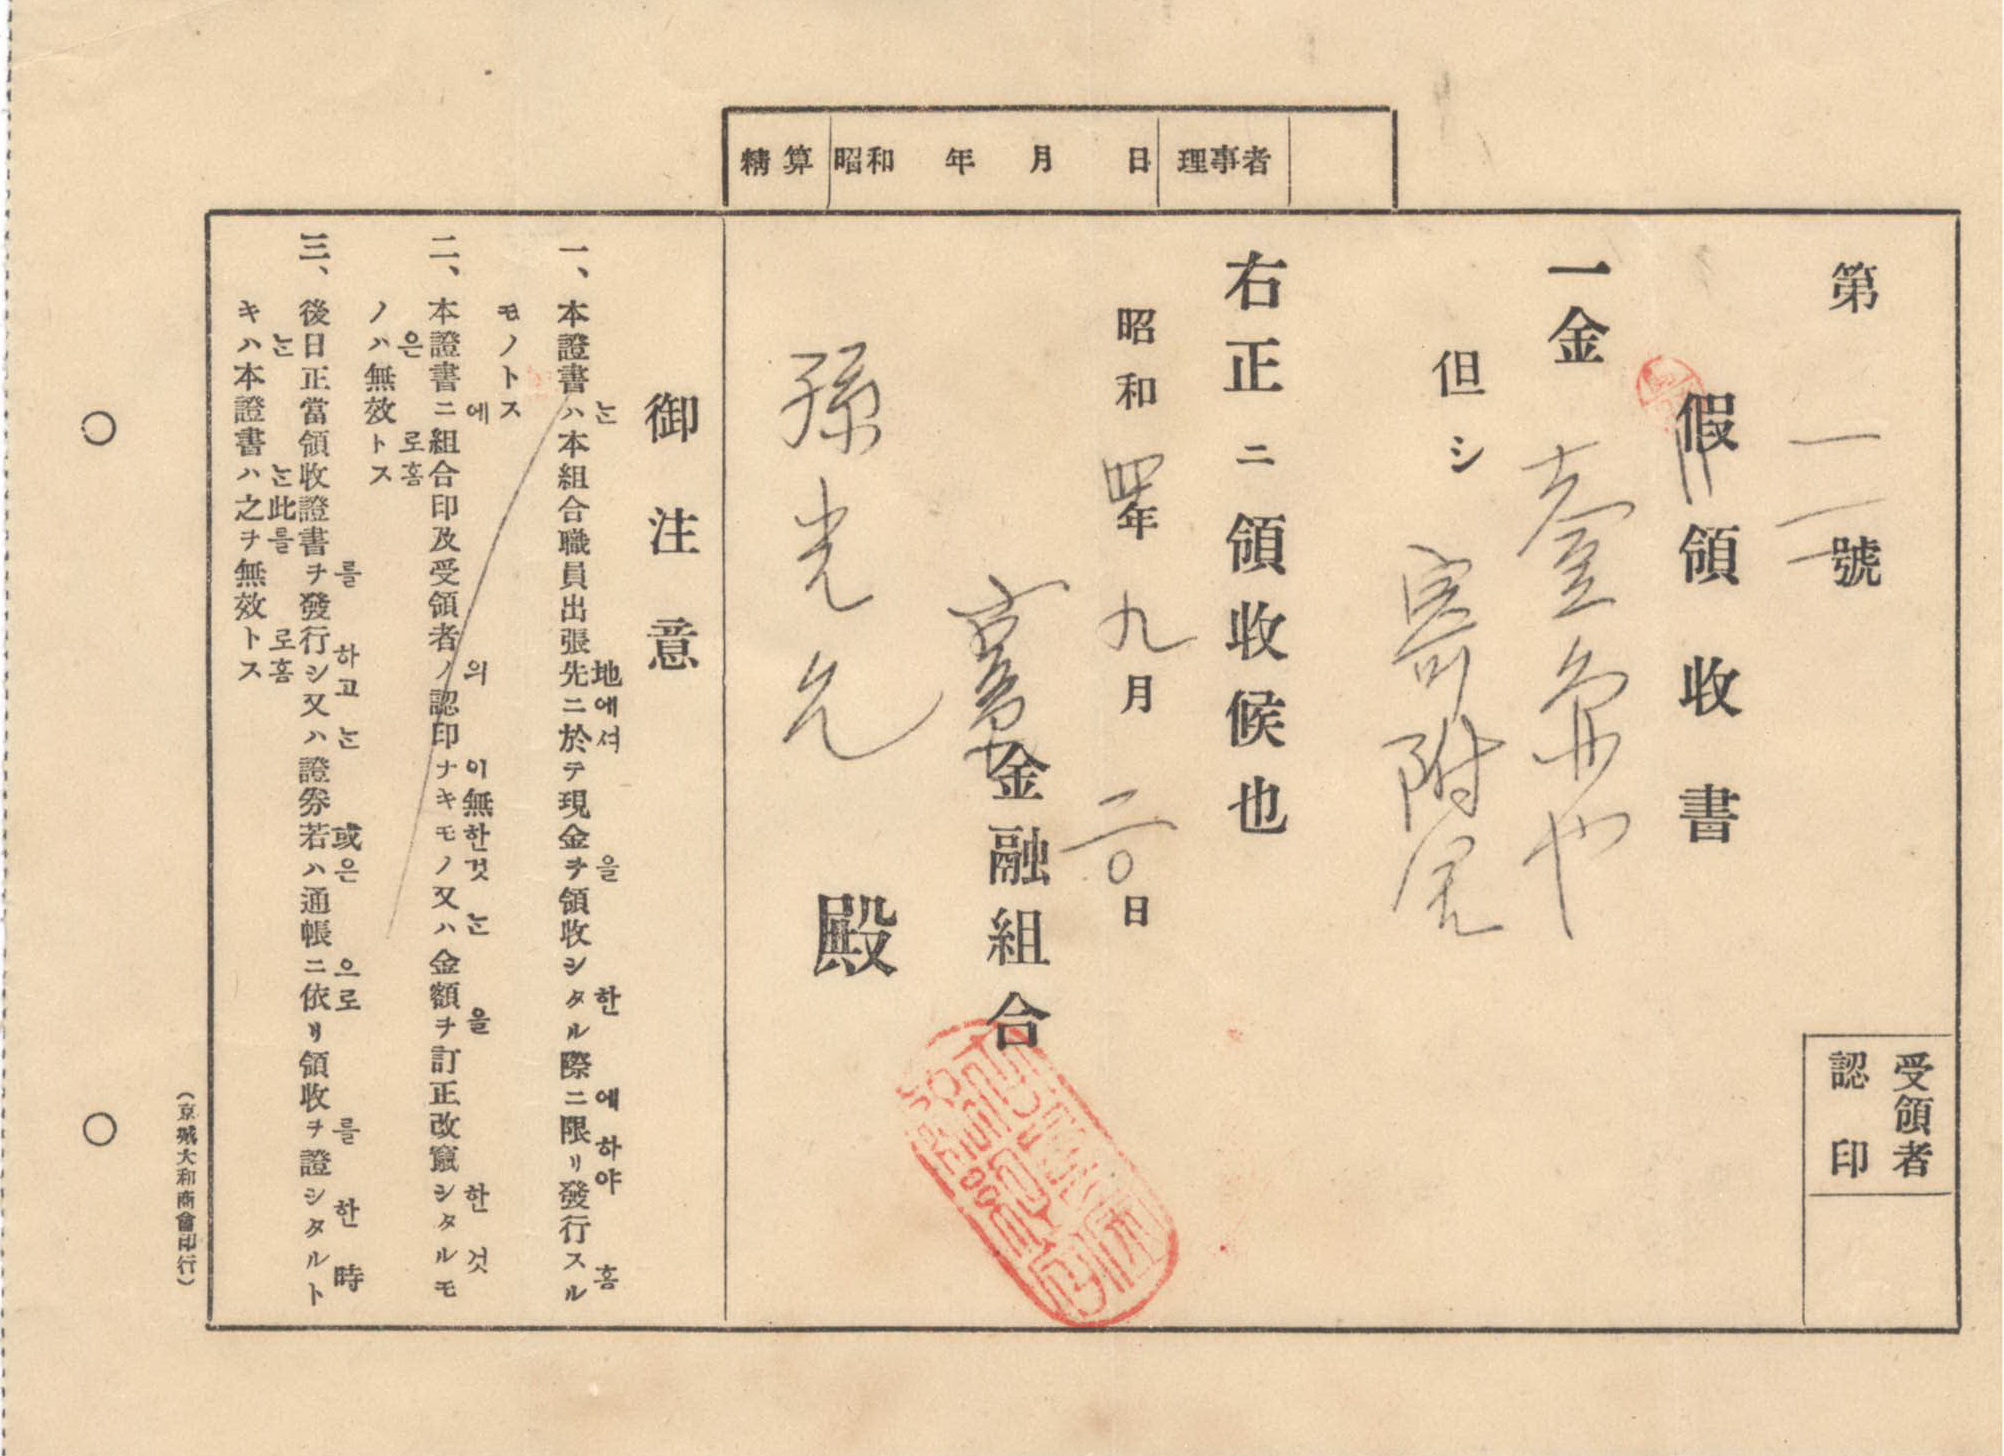 精算 昭和 年 月 日 理事者
第 一二 號
假領收書
一金 壹圓也
但シ 寄附金
右正ニ領收候也
昭和四年九月二〇日
金融組合
孫光 殿
受領者
認印
御注意
一、本證書ハ本組合職員出張先ニ於テ現金ヲ領收シタル際ニ限リ發行スル
는 地에셔 을 한 에하야 홈
モノトス
二、本證書ニ組合印及受領者ノ認印ナキモノ又ハ金額ヲ訂正改竄シタルモ
에 의 이無한것 는 을 한것
ノハ無效トス
은 로홈
三、後日正當領收證書ヲ發行シ又ハ證券若ハ通帳ニ依リ領收ヲ證シタルト
를 하고 는 或은 으로 를 한時
キハ本證書ハ之ヲ無效トス
는 는此를 로홈
(京城大和商會印行)